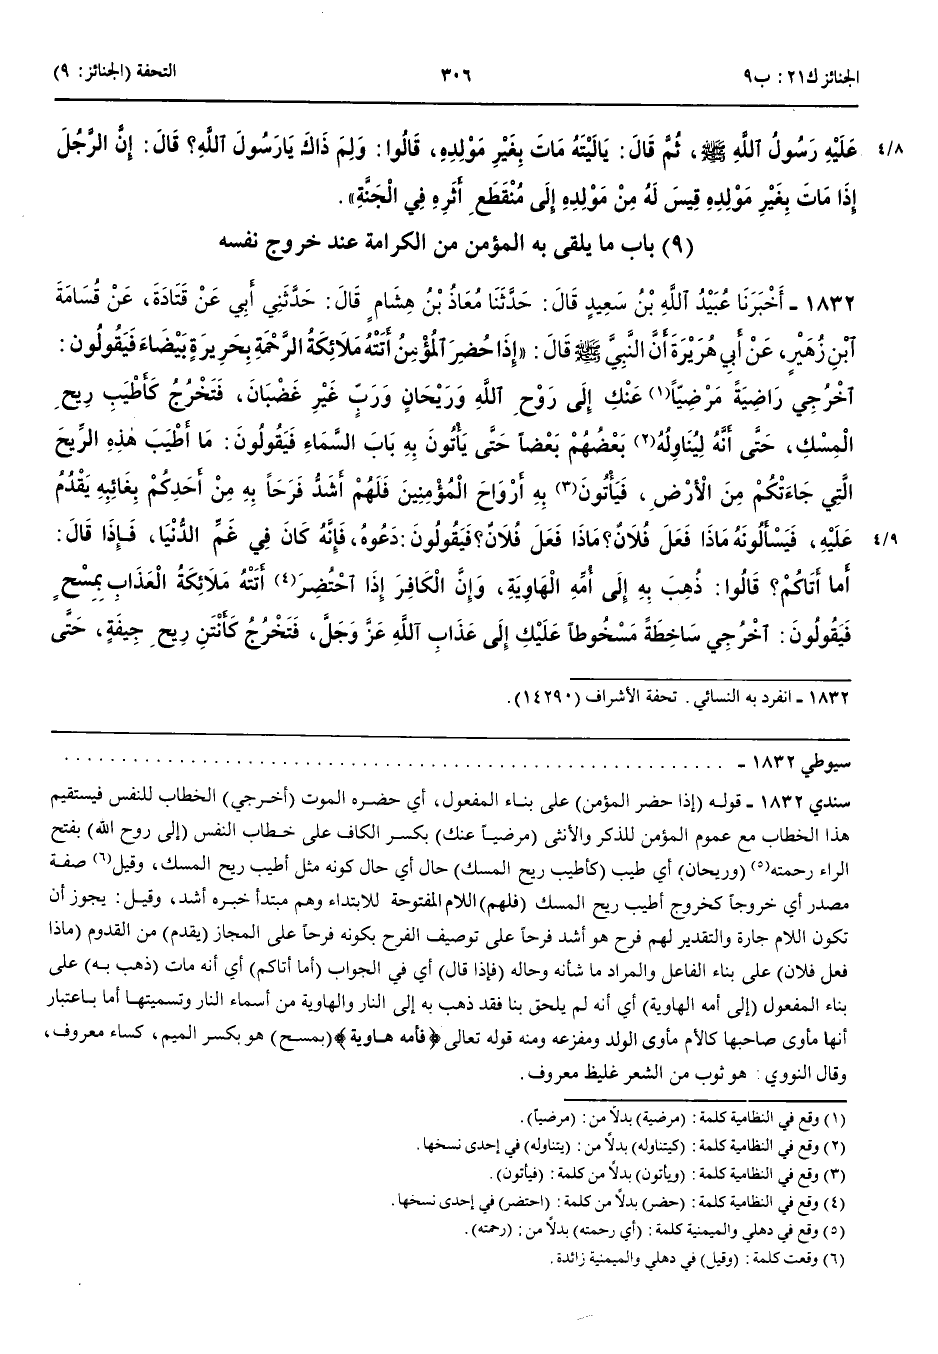 الجنائز ك٢١: ب٩ ٣٠٦ التحفة (الجنائز: ٩)
٤/٨ عَلَيْهِ رَسُولُ ٱللَّهِ ﷺ، ثُمَّ قَالَ: يَالَيْتَهُ مَاتَ بِغَيْرِ مَوْلِدِهِ، قَالُوا: وَلِمَ ذَاكَ يَارَسُولَ ٱللَّهِ؟ قَالَ: إِنَّ الرَّجُلَ
إِذَا مَاتَ بِغَيْرِ مَوْلِدِهِ قِيسَ لَهُ مِنْ مَوْلِدِهِ إِلَى مُنْقَطَعِ أَثَرِهِ فِي الْجَنَّةِ».
(٩) باب ما يلقى به المؤمن من الكرامة عند خروج نفسه
١٨٣٢ ـ أَخْبَرَنَا عُبَيْدُ اللَّهِ بْنُ سَعِيدٍ قَالَ: حَدَّثَنَا مُعَاذُ بْنُ هِشَامٍ قَالَ: حَدَّثَنِي أَبِي عَنْ قَتَادَةَ، عَنْ قَسَامَةَ
ٱبْنِ زُهَيْرٍ، عَنْ أَبِي هُرَيْرَةَ أَنَّ النَّبِيَّ ﷺ قَالَ: «إِذَا حُضِرَ الْمُؤْمِنُ أَتَتْهُ مَلَائِكَةُ الرَّحْمَةِ بِحَرِيرَةٍ بَيْضَاءَ فَيَقُولُونَ:
ٱخْرُجِي رَاضِيَةً مَرْضِيّاً(١) عَنْكِ إِلَى رَوْحِ اللَّهِ وَرَيْحَانٍ وَرَبٍّ غَيْرِ غَضْبَانَ، فَتَخْرُجُ كَأَطْيَبِ رِيحِ
الْمِسْكِ، حَتَّى أَنَّهُ لِيُنَاوِلُهُ(٢) بَعْضُهُمْ بَعْضاً حَتَّى يَأْتُونَ بِهِ بَابَ السَّمَاءِ فَيَقُولُونَ: مَا أَطْيَبَ هٰذِهِ الرِّيحَ
الَّتِي جَاءَتْكُمْ مِنَ الْأَرْضِ، فَيَأْتُونَ(٣) بِهِ أَرْوَاحَ الْمُؤْمِنِينَ فَلَهُمْ أَشَدُّ فَرَحاً بِهِ مِنْ أَحَدِكُمْ بِغَائِبِهِ يَقْدُمُ
٤/٩ عَلَيْهِ، فَيَسْأَلُونَهُ مَاذَا فَعَلَ فُلَانٌ؟ مَاذَا فَعَلَ فُلَانٌ؟ فَيَقُولُونَ: دَعُوهُ، فَإِنَّهُ كَانَ فِي غَمِّ الدُّنْيَا، فَإِذَا قَالَ:
أَما أَتَاكُمْ؟ قَالُوا: ذُهِبَ بِهِ إِلَى أُمِّهِ الْهَاوِيَةِ، وَإِنَّ الْكَافِرَ إِذَا ٱحْتُضِرَ(٤) أَتَتْهُ مَلَائِكَةُ الْعَذَابِ بِمِسْحٍ
فَيَقُولُونَ: ٱخْرُجِي سَاخِطَةً مَسْخُوطاً عَلَيْكِ إِلَى عَذَابِ ٱللَّهِ عَزَّ وَجَلَّ، فَتَخْرُجُ كَأَنْتَنِ رِيحِ جِيفَةٍ، حَتَّى
١٨٣٢ ـ انفرد به النسائي. تحفة الأشراف (١٤٢٩٠).
سيوطي ١٨٣٢ ـ ..........................................................
سندي ١٨٣٢ ـ قوله (إذا حضر المؤمن) على بناء المفعول، أي حضره الموت (أخرجي) الخطاب للنفس فيستقيم
هذا الخطاب مع عموم المؤمن للذكر والأنثى (مرضياً عنك) بكسر الكاف على خطاب النفس (إلى روح الله) بفتح
الراء رحمته(٥) (وريحان) أي طيب (كأطيب ريح المسك) حال أي حال كونه مثل أطيب ريح المسك، وقيل(٦) صفة
مصدر أي خروجاً كخروج أطيب ريح المسك (فلهم) اللام المفتوحة للابتداء وهم مبتدأ خبره أشد، وقيل: يجوز أن
تكون اللام جارة والتقدير لهم فرح هو أشد فرحاً على توصيف الفرح بكونه فرحاً على المجاز (يقدم) من القدوم (ماذا
فعل فلان) على بناء الفاعل والمراد ما شأنه وحاله (فإذا قال) أي في الجواب (أما أتاكم) أي أنه مات (ذهب به) على
بناء المفعول (إلى أمه الهاوية) أي أنه لم يلحق بنا فقد ذهب به إلى النار والهاوية من أسماء النار وتسميتها أما باعتبار
أنها مأوى صاحبها كالأم مأوى الولد ومفزعه ومنه قوله تعالى ﴿فأمه هاوية﴾ (بمسح) هو بكسر الميم، كساء معروف،
وقال النووي: هو ثوب من الشعر غليظ معروف.
(١) وقع في النظامية كلمة: (مرضية) بدلاً من: (مرضياً).
(٢) وقع في النظامية كلمة: (كيتناوله) بدلاً من: (يتناوله) في إحدى نسخها.
(٣) وقع في النظامية كلمة: (ويأتون) بدلاً من كلمة: (فيأتون).
(٤) وقع في النظامية كلمة: (حضر) بدلاً من كلمة: (احتضر) في إحدى نسخها.
(٥) وقع في دهلي والميمنية كلمة: (أي رحمته) بدلاً من: (رحمته).
(٦) وقعت كلمة: (وقيل) في دهلي والميمنية زائدة.